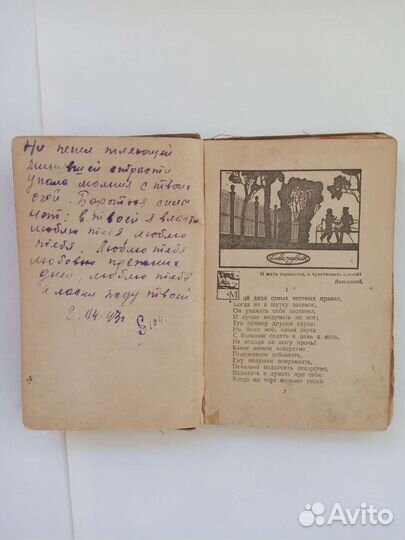 На пепел тлеющей
минувшей страсти
упала молния с твоих
очей. Бороться силы
нет: в твоей я власти
люблю тебя люблю
тебя. Люблю тебя
любовью прежних
дней, люблю тебя
и ласки жду твоей.
2.04-43г
Глава первая
И жить торопится, и чувствовать спешит
Вяземский.
I
Мой дядя самых честных правил,
Когда не в шутку занемог,
Он уважать себя заставил,
И лучше выдумать не мог;
Его пример другим наука:
Но, боже мой, какая скука
С больным сидеть и день и ночь,
Не отходя ни шагу прочь!
Какое низкое коварство
Полуживого забавлять,
Ему подушки поправлять,
Печально подносить лекарство,
Вздыхать и думать про себя:
Когда же чорт возьмет тебя!
3
Avito